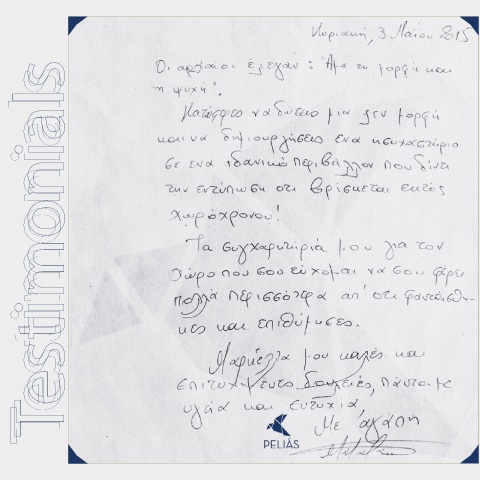 Testimonials
Κυριακή, 3 Μαΐου 2015
Οι αρχαίοι έλεγαν: "Άμα τη μορφή και
η ψυχή".
Κατάφερες να δώσεις μια ζεν μορφή
και να δημιουργήσεις ένα ησυχαστήριο
σε ένα ιδανικό περιβάλλον που δίνει
την εντύπωση ότι βρίσκεται εκτός
χωρόχρονου!
Τα συγχαρητήριά μου για τον
χώρο που σου εύχομαι να σου φέρει
πολλά περισσότερα απ' ότι φαντάστη-
κες και επιθύμησες.
Μαριέλλα μου καλές και
επιτυχημένες δουλειές, πάντα με
υγεία και ευτυχία
Με αγάπη
PELIÁS